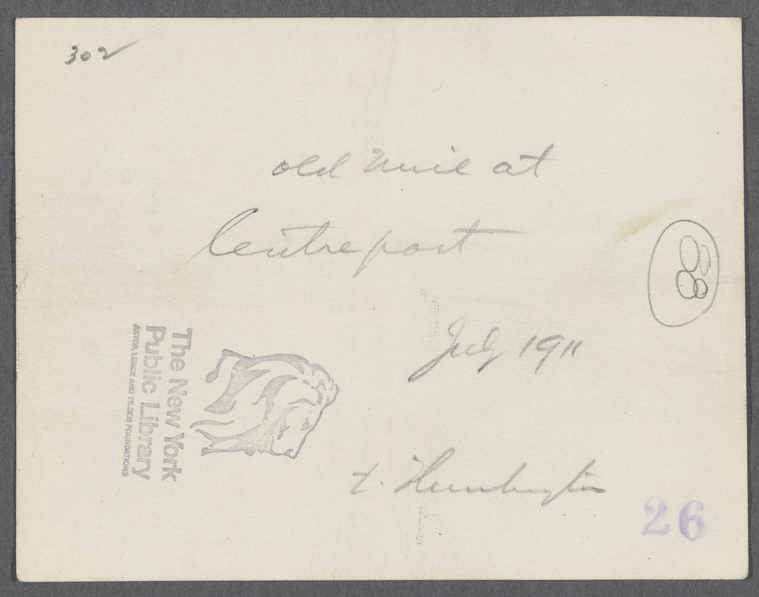 302
old Mill at
Centreport
July 1911
t. Huntington
The New York
Public Library
ASTOR, LENOX AND TILDEN FOUNDATIONS
26